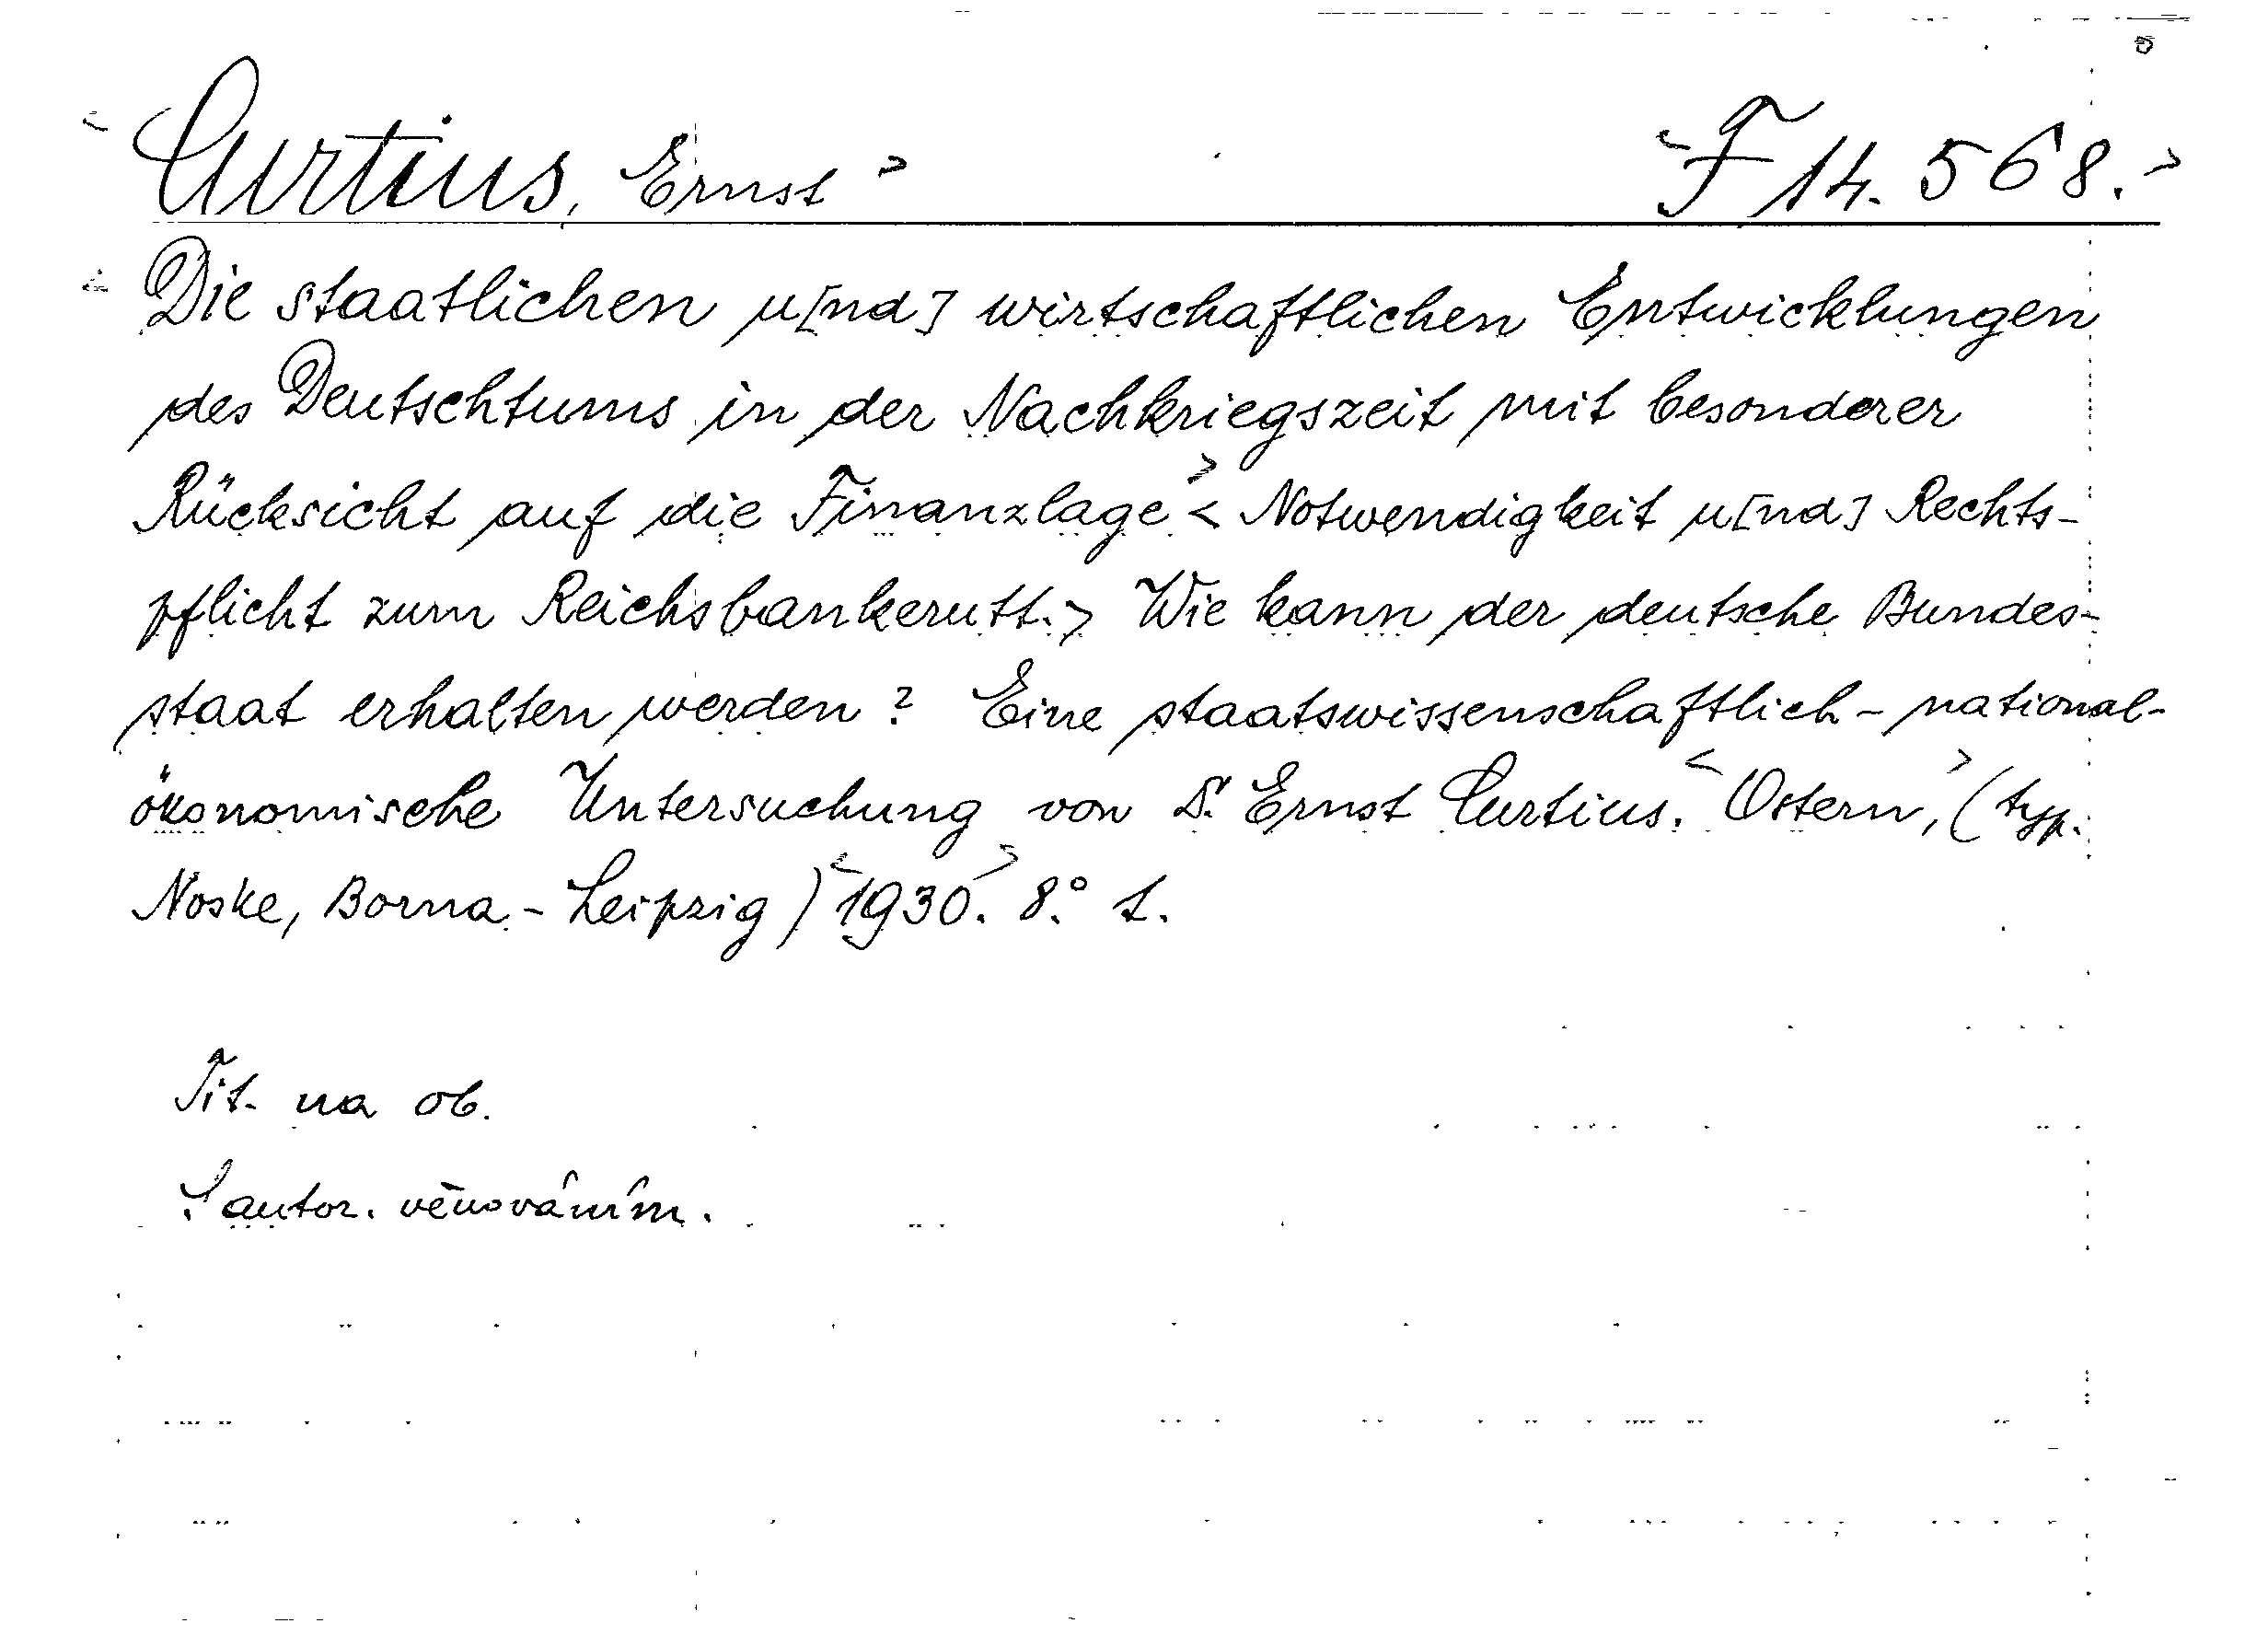 < Curtius, Ernst > < F 14.568. >
< Die staatlichen u[nd] wirtschaftlichen Entwicklungen
des Deutschtums in der Nachkriegszeit mit besonderer
Rücksicht auf die Finanzlage > < Notwendigkeit u[nd] Rechts-
pflicht zum Reichsbankerutt. > Wie kann der deutsche Bundes-
staat erhalten werden? Eine staatswissenschaftlich-national-
ökonomische Untersuchung von Dr. Ernst Curtius. < Ostern, > (typ.
Noske, Borna-Leipzig) < 1930. > 8.° 1.
Tit. na ob.
S autor. věnováním.